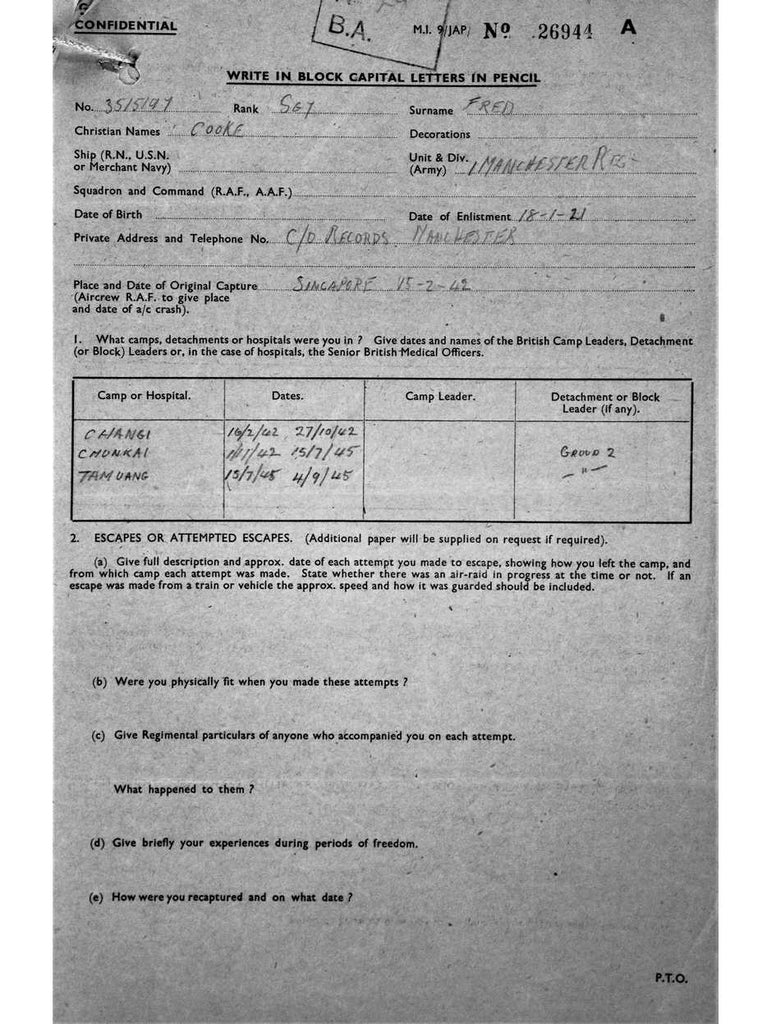 CONFIDENTIAL
B.A.
M.I. 9/JAP/ Nº 26944 A
WRITE IN BLOCK CAPITAL LETTERS IN PENCIL
No. 3515197 Rank SGT Surname FRED
Christian Names COOKE Decorations
Ship (R.N., U.S.N. or Merchant Navy) Unit & Div. (Army) 1 MANCHESTER REG
Squadron and Command (R.A.F., A.A.F.)
Date of Birth Date of Enlistment 18-1-21
Private Address and Telephone No. C/O RECORDS MANCHESTER
Place and Date of Original Capture SINGAPORE 15-2-42
(Aircrew R.A.F. to give place
and date of a/c crash).
1. What camps, detachments or hospitals were you in ? Give dates and names of the British Camp Leaders, Detachment
(or Block) Leaders or, in the case of hospitals, the Senior British Medical Officers.
Camp or Hospital. Dates. Camp Leader. Detachment or Block Leader (if any).
CHANGI 16/2/42 27/10/42
CHUNKAI 1/11/42 15/7/45 GROUP 2
TAMUANG 15/7/45 4/9/45 — " —
2. ESCAPES OR ATTEMPTED ESCAPES. (Additional paper will be supplied on request if required).
(a) Give full description and approx. date of each attempt you made to escape, showing how you left the camp, and
from which camp each attempt was made. State whether there was an air-raid in progress at the time or not. If an
escape was made from a train or vehicle the approx. speed and how it was guarded should be included.
(b) Were you physically fit when you made these attempts ?
(c) Give Regimental particulars of anyone who accompanied you on each attempt.
What happened to them ?
(d) Give briefly your experiences during periods of freedom.
(e) How were you recaptured and on what date ?
P.T.O.